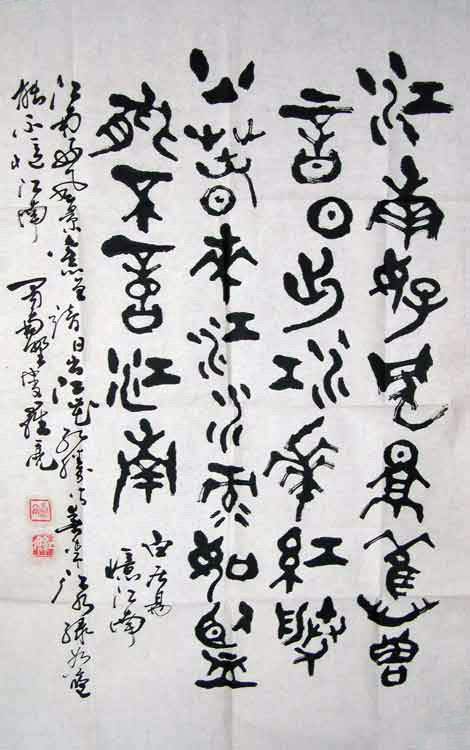 江南好風景舊曾
諳日出江花紅勝
火春來江水綠如藍
能不憶江南
白居易
憶江南
江南好風景舊曾諳日出江花紅勝火春來江水綠如藍
能不憶江南 蜀南野叟羅